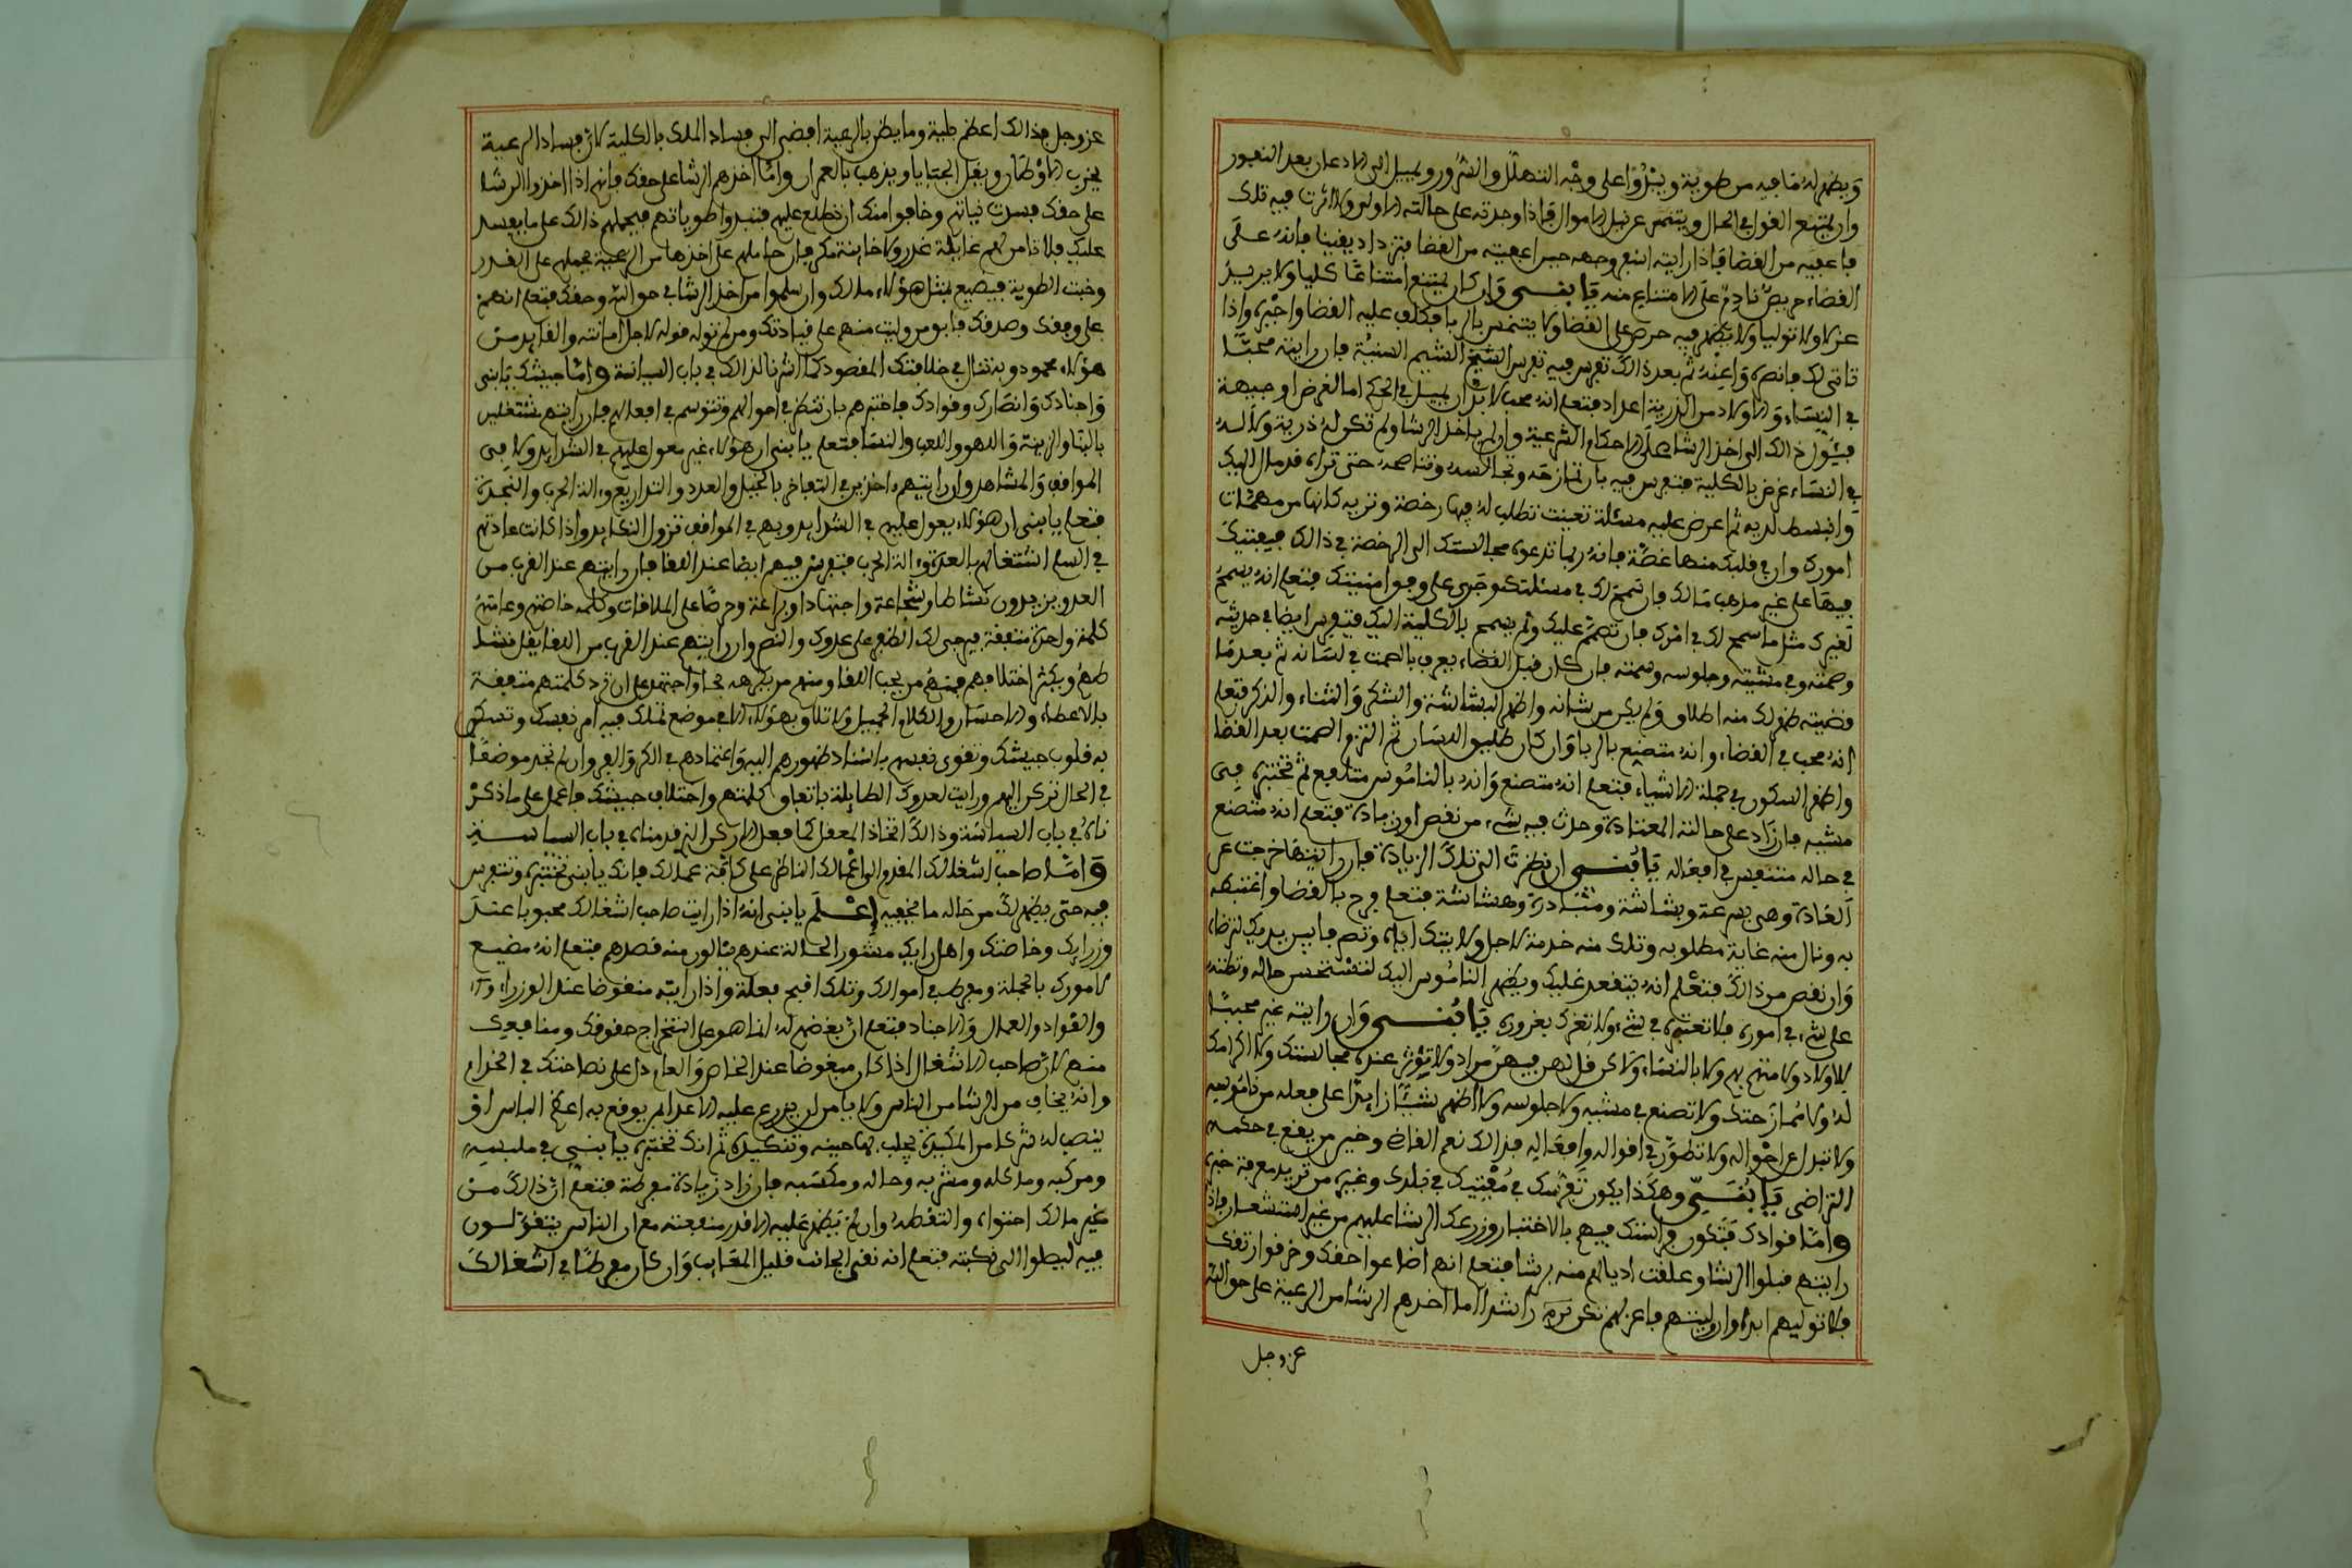 ويظهر له ما فيه من طوية ويبدوا على وجهه التهلل والسرور ويميل الى الاذعان بعد النفور
وان يمتنع القول في الحال ويتنمر عن نيل الاموال فاذا وجدته على حالته الاولى ولا اثرت فيه تلك
فاعفيه من القضا فاذا رايته امتقع وجهه حين اعفيته من القضا فتزداد يقينا فانه على
القضاء حريص نادم على الامتناع منه يا بني وان كان يمتنع امتناعا كليا ولا يريد
عزلا ولا توليا ولا يظهر فيه حرص على القضا ولا يتنمس بالريا فكلف عليه القضا واجبره واذا
تاتى لك فانصره واعنه ثم بعد ذلك تفرس فيه تفرس الشيخ الشيم السنية فان رايته محبا
في النساء والاولاد من الذرية اعداد فتعلم انه محب لا بد ان يميل في الحكم اما لغرض او جبهة
فيئول ذالك الى اخذ الرشا على الاحكام الشرعية وان لم ياخذ الرشا ولم تكن له ذرية ولا له
في النساء غرض بالكلية فتفرس فيه بان تمازحه وتجالسه وتناصحه حتى تراه قد مال اليك
وانبسط لديه ثم اعرض عليه مسئلة تعينت تطلب له فيها رخصة وتريه كانها من مهمات
امورك وان في قلبك منها غصة فانه ربما تدعوه مجالستك الى الرخصة في ذالك فيفتيك
فيها على غير مذهب مالك فان سمح لك في مسئلتك وجرى على وفق امنيتك فتعلم انه يسمح
لغيرك مثل ما سمح لك في امرك فان تصمم عليك ولم يسمح بالكلية اليك فتفرس ايضا في حديثه
وصمته وفي مشيته وجلوسه وهمته فان كان قبل القضاء يعرف بالصمت في لسانه ثم بعد ما
قضيته ظهر لك منه اطلاق ولم يكن من شانه واظهر البشاشة والشكر والثناء والذكر فتعلم
انه محب في القضاء وانه متصنع بالريا وان كان طليق اللسان ثم التزم الصمت بعد القضا
واظهر السكون في جملة الاشياء فتعلم انه متصنع وانه بالناموس متلفع ثم تختبره في
مشيه فان زاد على حالته المعتادة وحدث فيه شيء من نقص او زيادة فتعلم انه متصنع
في حاله متنمس في افعاله يا بني ان نظرت الى تلك الزيادة فان رايتها خرجت عن
العادة وهي بسرعة وبشاشة ومبادرة وهشاشة فتعلم فرح بالقضا واغتبطه
به ونال منه غاية مطلوبه وتلك منه خدمة لاجل ولايتك اياه وتصرفا بين يديك لترضاه
وان نقص من ذالك فتعلم انه يتقعد عليك ويظهر الناموس اليك لتستحسن حاله وتظنه
على شيء في اموره فلا تعتبره في شيء ولا تغرك بغروره يا بني وان رايته غير محب
للاولاد ولا متهم بهم ولا بالنساء ولا كن قل لهن فيهن مراد ولا تؤثر عنده مجالستك ولا اكرامك
له ولا ممازحتك ولا تصنع في مشيه ولا جلوسه ولا اظهر شيئا زايدا على فعله من ناموسه
ولا تبدل عن احواله ولا تطور في اقواله وافعاله فذالك نعم القاضي وخير من يقع في حكمه
التراضي يا بني وهكذا يكون تفرسك في مفتيك في بلدك وغيره من تريد معرفة خبره
واما قوادك فتكون فراستك فيهم بالاختبار وزرعك الرشا عليهم من غير استشعار فاذا
رايتهم قبلوا الرشا وعلقت اذيالهم منه برشا فتعلم انهم اضاعوا حقك وخرقوا رتقك
فلا توليهم ابدا وان وليتهم فاعزلهم تكن تره راشدا اما اخذهم الرشا من الرعية على حوالته
عز وجل
عز وجل فذالك اعظم بلية وما يضر بالرعية افضى الى فساد الملك بالكلية لان فساد الرعية
يخرب الاوطان ويقل الجبايا ويذهب بالعمران واما اخذهم الرشا على حقك فانهم اذا اخذوا الرشا
على حقك فسدت نياتهم وخافوا منك ان تطلع عليهم فتبدوا طوياتهم فيحملهم ذالك على ما يفسد
عليك فلا تامن لهم غايلة غدر ولا خاينة مكر فان حاملهم على اخذها من الرعية يحملهم على الغدر
وخبث الطوية فيضيع بمثل هؤلاء ملك وان سلموا من اخذ الرشا في حوالته وحقك فتعلم انهم
على وفقك وصدقك فابق من وليت منهم على قيادتك ومن لم توله فوله لاجل امانته والقايد من
هؤلاء محمود وبه تنال في خلافتك المقصود كما اشرنا لذالك في باب السياسة واما جيشك يا بني
واجنادك وانصارك وقوادك فاختبرهم بان تنظر في احوالهم وتتوسم في افعالهم فان رايتهم مشتغلين
بالبنا والزينة واللهو واللعب والنسا فتعلم يا بني ان هؤلاء غير معول عليهم في الشدايد ولا في
المواقف والمشاهد وان رايتهم اخذين في التفاخر بالخيل والعدد والتداريع والة الحرب والنجدة
فتعلم يا بني ان هؤلاء يعول عليهم في الشدايد وبهم في المواقف تزول النكايد واذا كانت عادتهم
في السلم اشتغالهم بالعدة والة الحرب فتفرس فيهم ايضا عند اللقا فان رايتهم عند القرب من
العدو يزيدون نشاطا وشجاعة واجتهادا وبراعة وحرصا على الملاقات وكلمة خاصتهم وعامتهم
كلمة واحدة متفقة فيرجى لك الظفر على عدوك والنصر وان رايتهم عند القرب من اللقا يقل نشا
طهم ويكثر اختلافهم فمنهم من يحب اللقا ومنهم من يكرهه فحاول واجتهد على ان ترد كلمتهم متفقة
بالاعطاء والاحسان والكلام الجميل ولا تلاق بهؤلاء الا في موضع تملك فيه امر نفسك وتسكن
به قلوب جيشك وتقوى نفسهم باسناد ظهورهم اليه واعتمادهم في الكر والفر وان لم تجد موضعا
في الحال تركن اليه ورايت لعدوك الطايلة باتفاق كلمتهم واختلاف جيشك فاعمل على ما ذكر
ناه في باب السياسة وذالك اتخاذ المعقل كما فعل الاركز الذي قدمناه في باب السياسة
واما صاحب اشغالك المقدم لاعمالك الناظر على كافة عمالك فانك يا بني تختبره وتتفرس
فيه حتى يظهر لك من حاله ما يخفيه اعلم يا بني انه اذا رايت صاحب اشغالك محبوبا عند
وزرايك وخاصتك واهل رايك مشكور الحالة عندهم ينالون منه قصدهم فتعلم انه مضيع
لامورك بالجملة ومفرط في اموالك وتلك اقبح فعلة واذا رايته مبغوضا عند الوزراء
والقواد والعمال والاجناد فتعلم ان بغضهم له انما هو على استخراج حقوقك ومنافعك
منهم لان صاحب الاشغال اذا كان مبغوضا عند الخاص والعام دل على نصاحتك في الخدام
وانه يخاف من الرشا من الناس ولا يامن ان يزرع عليه الاعدا من يوقع به اعظم الباس او
ينصب له شركا من المكيدة يجلب بها حينه وتنكيده ثم انك تختبره يا بني في ملبسه
ومركبه وماكله ومشربه وحاله ومكسبه فان زاد زيادة مفرطة فتعلم ان ذالك من
غير مالك احتواه والتقطه وان لم يظهر عليه الا قدر منفعته مع ان الناس يتقولون
فيه ليبطوا الى نكبته فتعلم انه نقي الجانب قليل المعايب وان كان مفرطا في اشغالك